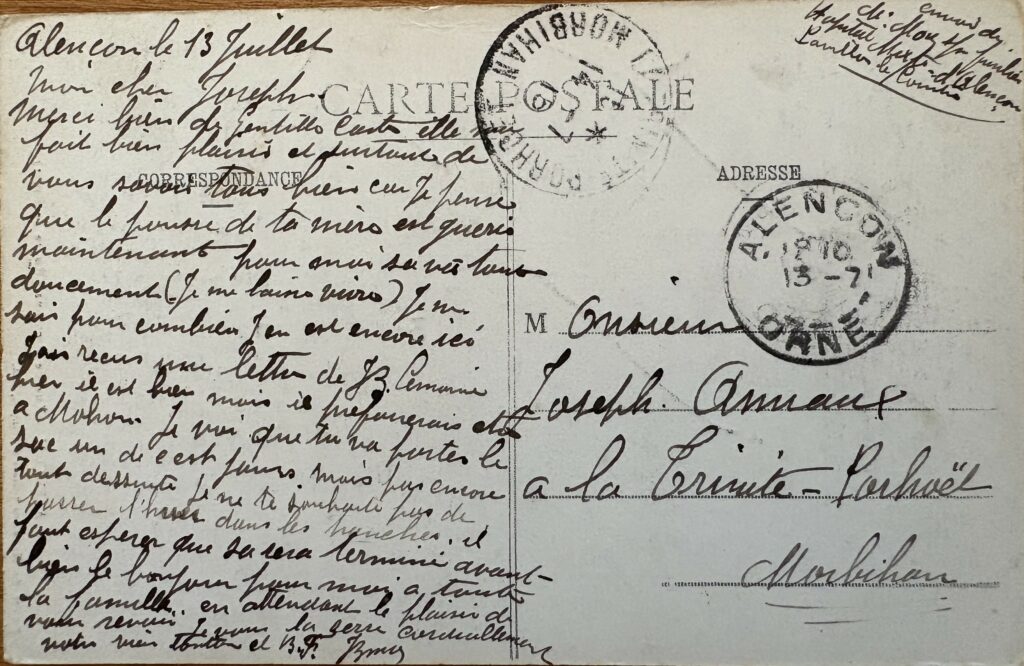 Alencon le 13 Juillet
Moi cher Joseph
Merci bien de gentille carte elle
fait bien plaisir et surtout de
vous savoir tous bien car Je pense
que le pousse de ta mère est gueris
maintenant pour moi sa va tout
doucement (Je me laisse vivre) Je ne
sais pour combien J en est encore ici
J ais recus une lettre de JB. Lemoine
hier il est bien mais il préfaurerais etre
a Mohon Je voi que tu va porter le
sac un de c est jours mais pas encore
tout dessuite Je ne te souhaite pas de
passer l'hiver dans les tranches. il
faut esperer que sa sera terminé avant
bien le bonjour pour moi a toute
la famille. en attendant le plaisir de
vous revoir Je vous la serre cordiallement
votre vieu tonton et
CARTE POSTALE
CORRESPONDANCE
ADRESSE
envoi de
Hopital
d'Alencon
LA TRINITE PORHOET
MORBIHAN
ALENCON
13 -7
ORNE
M Onsieur
Joseph.
a la Trinite - Porhoët
Morbihan